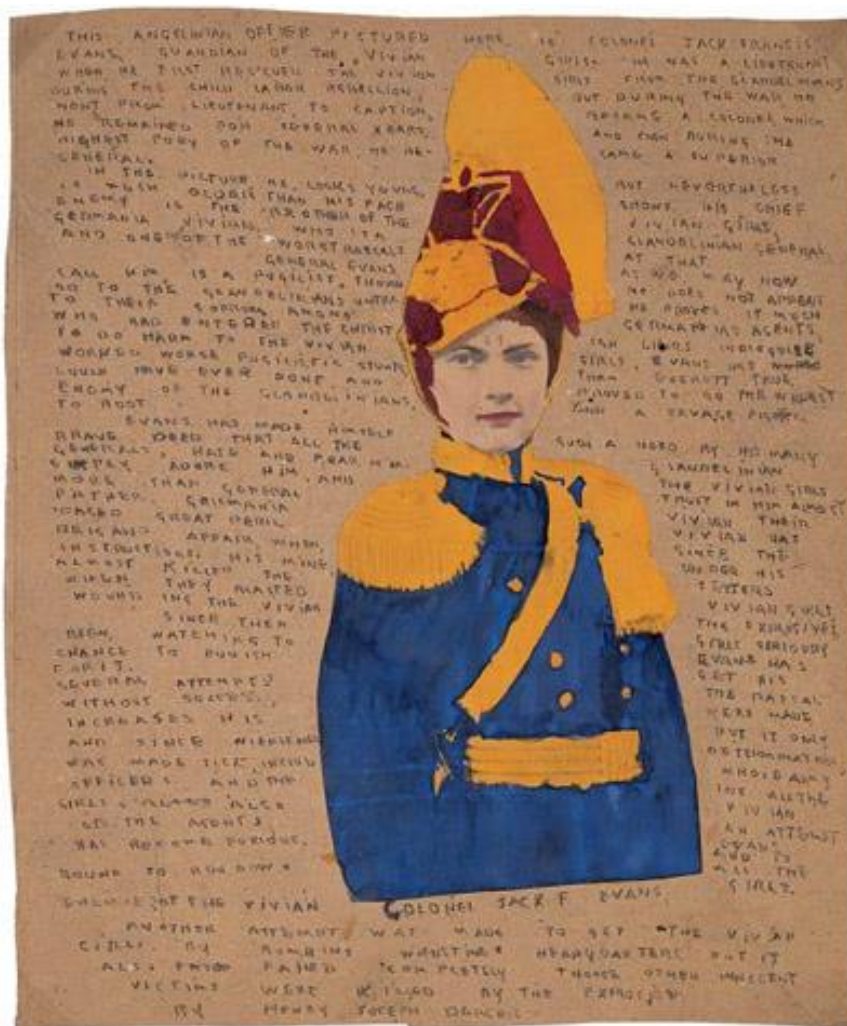 THIS ANGELINIAN OFFICER PICTURED HERE IS COLONEL JACK FRANCIS
EVANS, GUARDIAN OF THE VIVIAN GIRLS. HE WAS A LIEUTENANT
WHEN HE FIRST RESCUED THE VIVIAN GIRLS FROM THE GLANDELINIANS
DURING THE CHILD LABOR REBELLION, BUT DURING THE WAR HE
WENT FROM LIEUTENANT TO CAPTION, BECAME A COLONEL WHICH
HE REMAINED FOR SEVERAL YEARS, AND THEN DURING THE
HIGHEST FURY OF THE WAR, HE BE- CAME A SUPERIOR
GENERAL.
IN THE PICTURE HE LOOKS YOUNG, BUT NEVERTHELESS
IS MUCH OLDER THAN HIS FACE SHOWS. HIS CHIEF
ENEMY IS THE BROTHER OF THE VIVIAN GIRLS,
GERMANIA VIVIAN, WHO IS A GLANDELINIAN GENERAL
AND ONE OF THE WORST RASCALS AT THAT.
GENERAL EVANS, AS WE MAY NOW
CALL HIM IS A PUGILIST, THOUGH HE DOES NOT APPEAR
SO TO THE GLANDELINIANS HE PROVES IT MUCH
TO THEIR SORROW AMONG GERMANIAS AGENTS
WHO HAD ENTERED THE CHRIST- IAN LINES
TO DO HARM TO THE VIVIAN GIRLS, EVANS HAS
WORKED WORSE PUGILISTIC STUNTS THAN EVERETT TRUE
COULD HAVE EVER DONE AND PROVED TO BE THE WORST
ENEMY OF THE GLANDELINIANS, AND A SAVAGE
TO BOOT.
EVANS HAS MADE HIMSELF SUCH A HERO BY HIS MANY
BRAVE DEED THAT ALL THE GLANDELINIAN
GENERALS, HATE AND FEAR HIM. THE VIVIAN GIRLS
SIMPLY ADORE HIM AND TRUST IN HIM ALMOST
MORE THAN GENERAL VIVIAN THEIR
FATHER. GERMANIA VIVIAN HAS
GREAT PERIL SINCE THE
AFFAIR WHEN, UNDER HIS
INSTRUCTIONS, HIS MINE
ALMOST KILLED THE VIVIAN GIRLS
WHEN THEY BLASTED THE EXPLOSIVES
WOUNDING THE VIVIAN GIRLS SERIOUSLY
SINCE THEN EVANS HAS
BEEN WATCHING TO GET HIS
CHANCE TO PUNISH THE RASCAL
FOR IT.
SEVERAL ATTEMPTS WERE MADE
WITHOUT SUCCESS, BUT IT ONLY
INCREASES HIS DETERMINATION
AND SINCE WHOLE ARMY
WAS MADE SICK, INCLUD- ING ALL THE
OFFICERS AND THE VIVIAN
GIRLS ALSO AN ATTEMPT
OF THE AGENTS EVANS
HAS BECOME FURIOUS, AND IS
BOUND TO RUN DOWN ALL THE
ENEMIES OF THE VIVIAN GIRLS.
COLONEL JACK F EVANS.
ANOTHER ATTEMPT WAS MADE TO GET THE VIVIAN
GIRLS BY BOMBING HEADQUARTERS BUT IT
ALSO FAILED COMPLETELY THOUGH OTHER INNOCENT
VICTIMS WERE KILLED BY THE EXPLOSION
BY HENRY JOSEPH DARGER